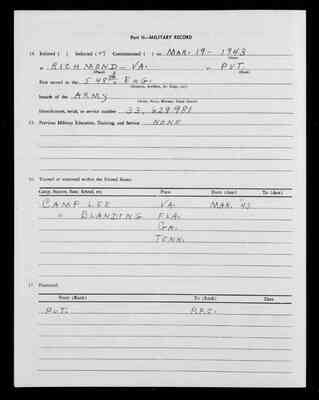 Part II—MILITARY RECORD
14. Enlisted ( ) Inducted (✓) Commissioned ( ) on MAR. 19 - 1943
(Date)
at RICHMOND - VA. as PVT.
(Place) (Rank)
First served in the 548th ENG.
branch of the ARMY
Identification, serial, or service number 33,629981
15. Previous Military Education, Training, and Service NONE
16. Trained or stationed within the United States:
Camp, Station, Base, School, etc. Place From (date) To (date)
CAMP LEE VA. MAR. '43
" BLANDING FLA.
GA.
TENN.
17. Promoted:
From (Rank) To (Rank) Date
PVT. P.F.C.